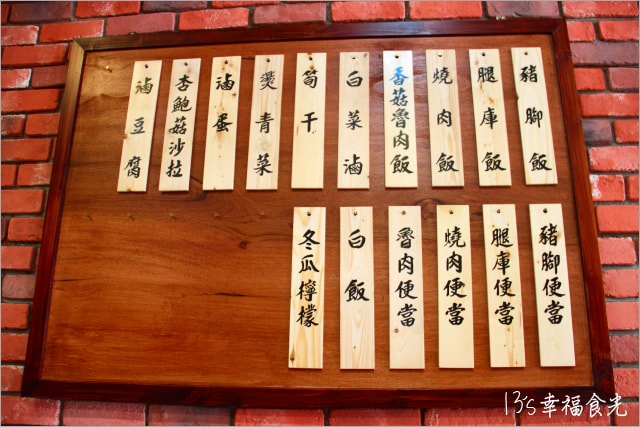 豬腳飯
腿庫飯
燒肉飯
香菇魯肉飯
白菜滷
筍干
燙青菜
滷蛋
杏鮑菇沙拉
滷豆腐
豬腳便當
腿庫便當
燒肉便當
魯肉便當
白飯
冬瓜檸檬
13's幸福食光